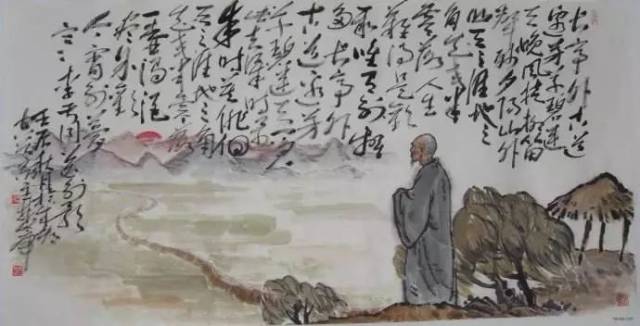 长亭外古道
边芳草碧连
天晚风拂柳笛
声残夕阳山外
山天之涯地之
角知交半
零落人生
难得是欢
聚唯有别离
多长亭外
古道边芳
草碧连天问君
此去几时来
来时莫徘徊
天之涯地之角
知交半零落
一壶浊酒
尽余欢
今宵别梦
寒李叔同送别歌
壬辰秋月